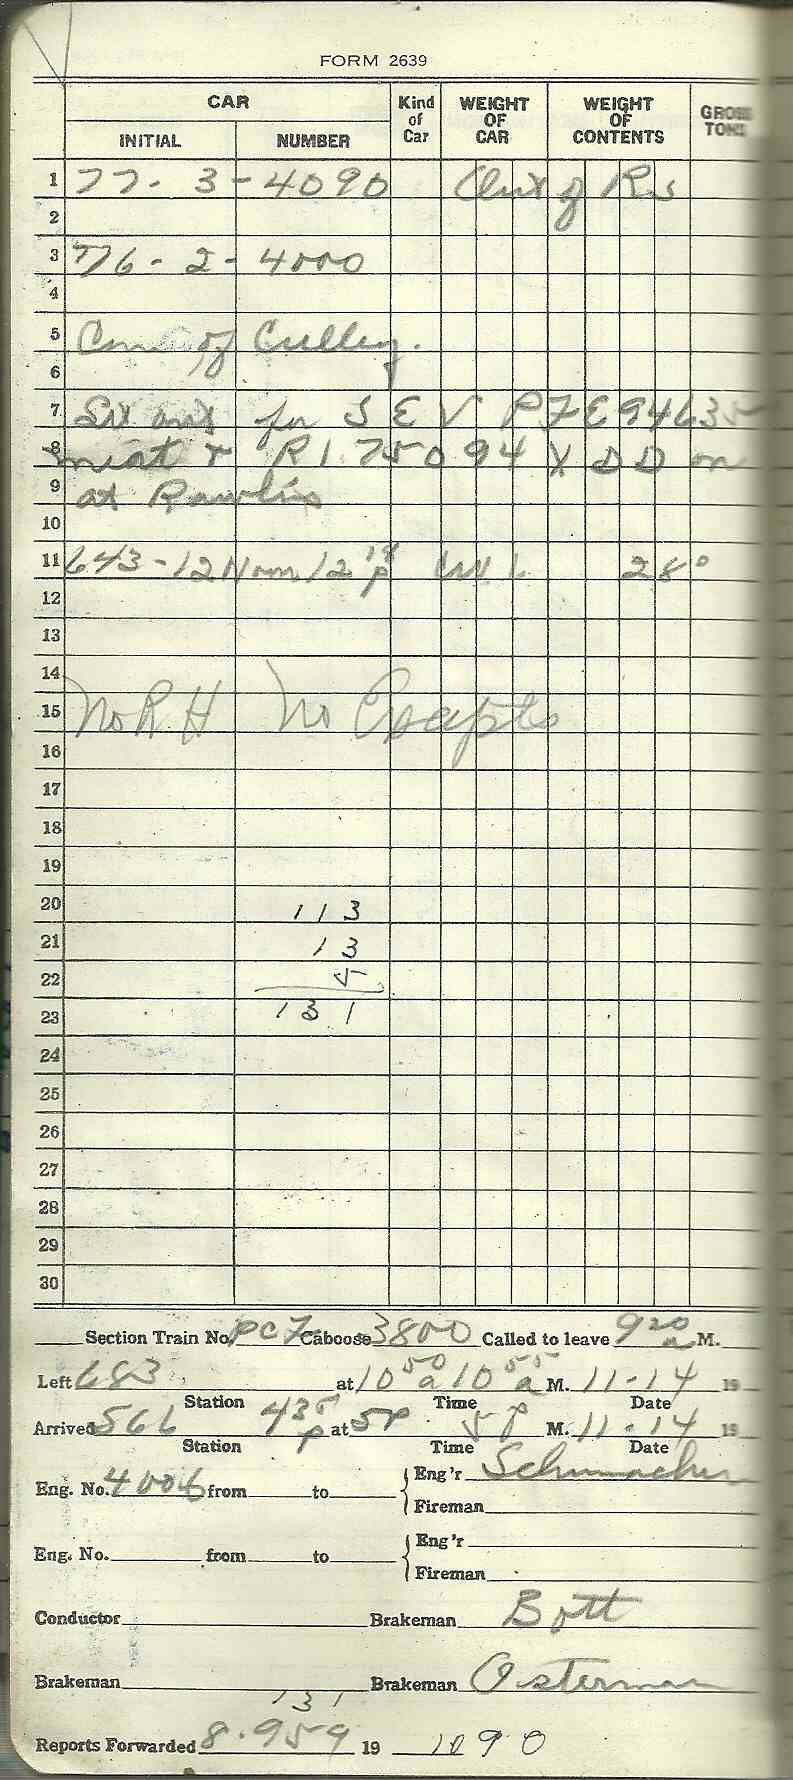 FORM 2639
CAR Kind of Car WEIGHT OF CAR WEIGHT OF CONTENTS GROSS TONS
INITIAL NUMBER
1 77 - 3 - 4090 of Rs
2
3 776 - 2 - 4000
4
5 of Culley.
6
7 for S E V PFE 94635
8 meat & RI 75094 X D D on
9 at Rawlins
10
11 643 - 12 Noon 12 18 p 28°
12
13
14
15 No R H No Excepts
16
17
18
19
20 113
21 13
22 5
23 131
24
25
26
27
28
29
30
Section Train No. PC7 Caboose 3800 Called to leave 9 20 a M.
Left 683 at 10 50 a 10 55 a M. 11-14 19
Station Time Date
Arrived 566 4 35 p at 5P 5 p M. 11-14 19
Station Time Date
Eng. No. 4006 from to Eng'r Schumacher
Fireman
Eng. No. from to Eng'r
Fireman
Conductor Brakeman Bott
Brakeman Brakeman Osterman
131
Reports Forwarded 8.959 19 1090